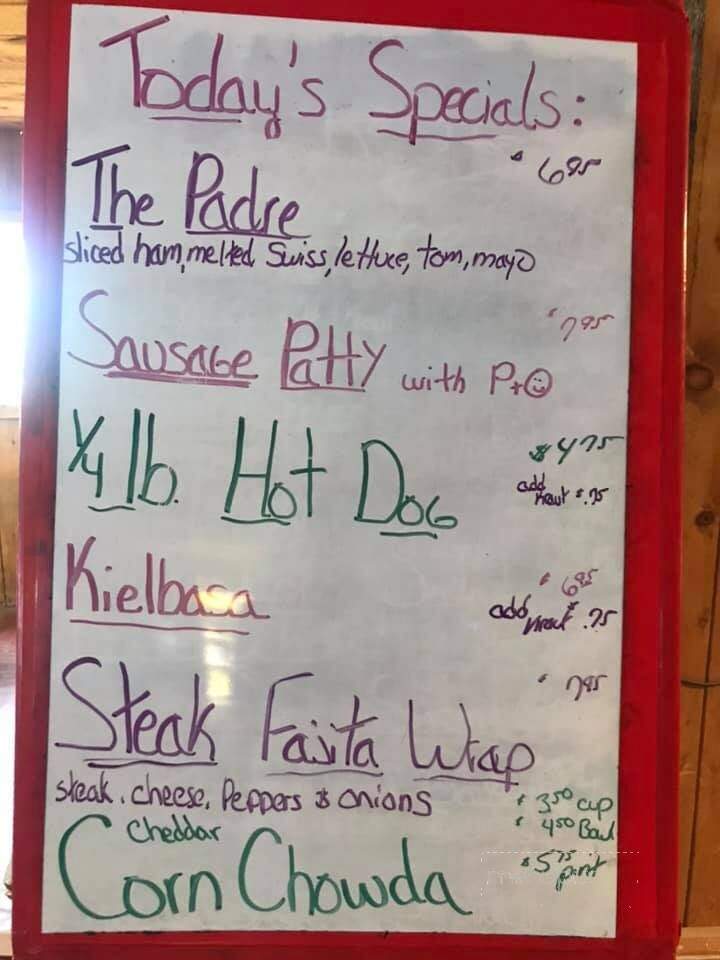 Today's Specials:
The Padre $6.95
sliced ham, melted Swiss, lettuce, tom, mayo
Sausage Patty with P+O $7.95
1/4 lb. Hot Dog $4.75
add kraut $.75
Kielbasa $6.95
add kraut $.75
Steak Fajita Wrap $7.95
steak, cheese, Peppers & onions
Cheddar
Corn Chowda
$3.50 cup
$4.50 Bowl
$5.75 pint